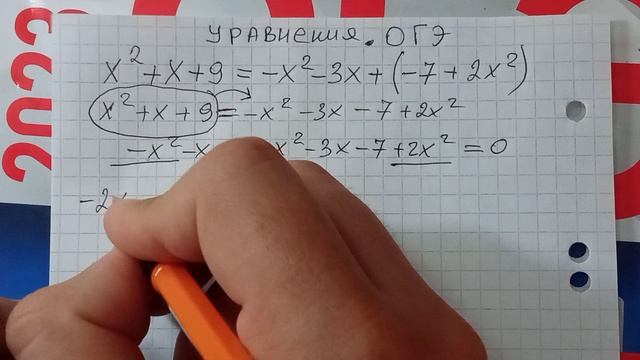 2023
УРАВНЕНИЯ. ОГЭ
x² + x + 9 = -x² - 3x + (-7 + 2x²)
x² + x + 9 = -x² - 3x - 7 + 2x²
-x² - x x² - 3x - 7 + 2x² = 0
-2